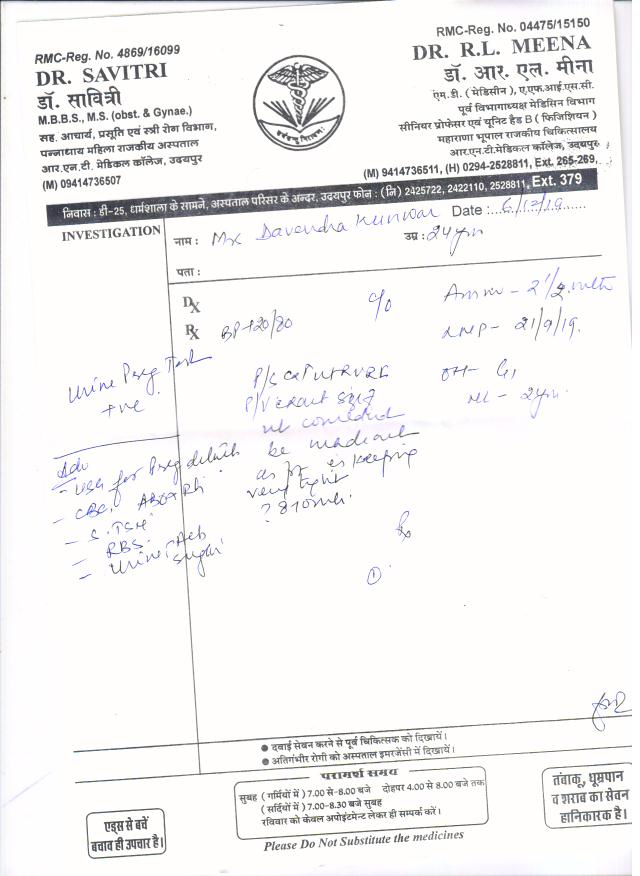 RMC-Reg. No. 4869/16099
DR. SAVITRI
डॉ. सावित्री
M.B.B.S., M.S. (obst. & Gynae.)
सह. आचार्य, प्रसूति एवं स्त्री रोग विभाग,
पन्नाधाय महिला राजकीय अस्पताल
आर.एन.टी. मेडिकल कॉलेज, उदयपुर
(M) 09414736507
RMC-Reg. No. 04475/15150
DR. R.L. MEENA
डॉ. आर. एल. मीना
एम.डी. ( मेडिसीन ), ए.एफ.आई.एस.सी.
पूर्व विभागाध्यक्ष मेडिसिन विभाग
सीनियर प्रोफेसर एवं यूनिट हैड B ( फिजिशियन )
महाराणा भूपाल राजकीय चिकित्सालय
आर.एन.टी.मेडिकल कॉलेज, उदयपुर
(M) 9414736511, (H) 0294-2528811, Ext. 265-269,
निवास : डी-25, धर्मशाला के सामने, अस्पताल परिसर के अन्दर, उदयपुर फोन : (नि) 2425722, 2422110, 2528811, Ext. 379
INVESTIGATION
नाम : Davendra Kunwar Date : 6/12/19
उम्र : 24 yrs
पता :
DX
RX BP-120/80
c/o
LMP- 21/9/19.
Urine Preg Test
+ve
P/S
P/V exact size
not
be made out
as pr is keeping
very tight
Adv
- USG for Preg details
- CBC. ABORh
- S.TSH
- RBS.
- Urine Alb
sugar
Rx
①
● दवाई सेवन करने से पूर्व चिकित्सक को दिखायें।
● अतिगंभीर रोगी को अस्पताल इमरजेंसी में दिखायें।
परामर्श समय
सुबह ( गर्मियों में ) 7.00 से-8.00 बजे दोहपर 4.00 से 8.00 बजे तक
( सर्दियों में ) 7.00-8.30 बजे सुबह
रविवार को केवल अपोइंटमेन्ट लेकर ही सम्पर्क करें।
एड्स से बचें
बचाव ही उपचार है।
तंबाकू, धूम्रपान
व शराब का सेवन
हानिकारक है।
Please Do Not Substitute the medicines